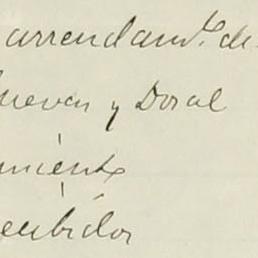 arrendamto de
Cuevas y Doral
miento
recibidor